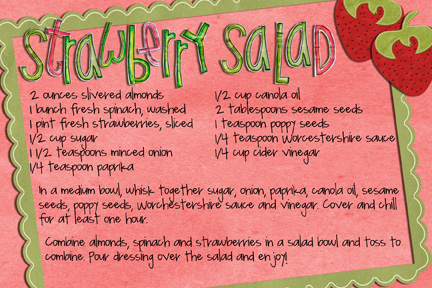 strawberry salad
2 ounces slivered almonds
1 bunch fresh spinach, washed
1 pint fresh strawberries, sliced
1/2 cup sugar
1 1/2 teaspoons minced onion
1/4 teaspoon paprika
1/2 cup canola oil
2 tablespoons sesame seeds
1 teaspoon poppy seeds
1/4 teaspoon Worcestershire sauce
1/4 cup cider vinegar
In a medium bowl, whisk together sugar, onion, paprika, canola oil, sesame
seeds, poppy seeds, Worchestershire sauce and vinegar. Cover and chill
for at least one hour.
Combine almonds, spinach and strawberries in a salad bowl and toss to
combine. Pour dressing over the salad and enjoy!